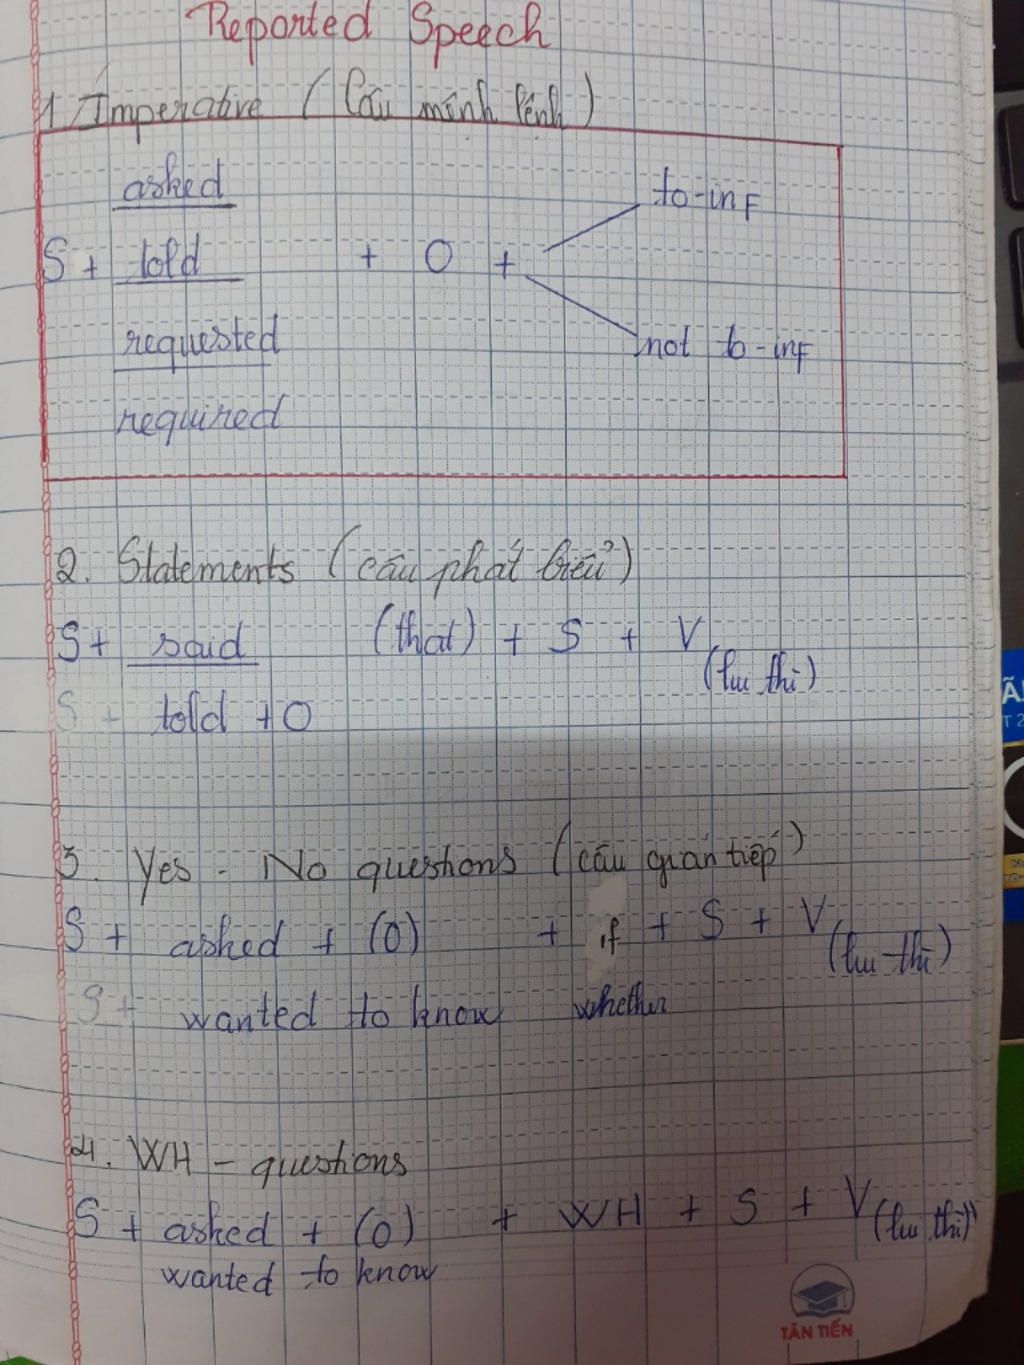 Reported Speech
1. Imperative (Câu mính lệnh)
asked
to-inf
S + told + O +
requested
not to-inf
required
2. Statements (câu phát biểu)
S + said (that) + S + V
(lùi thì)
S + told + O
3. Yes - No questions (câu gián tiếp)
S + asked + (O) + if + S + V
(lùi thì)
S + wanted to know whether
4. WH - questions
S + asked + (O) + WH + S + V
(lùi thì)
wanted to know
TÂN TIẾN